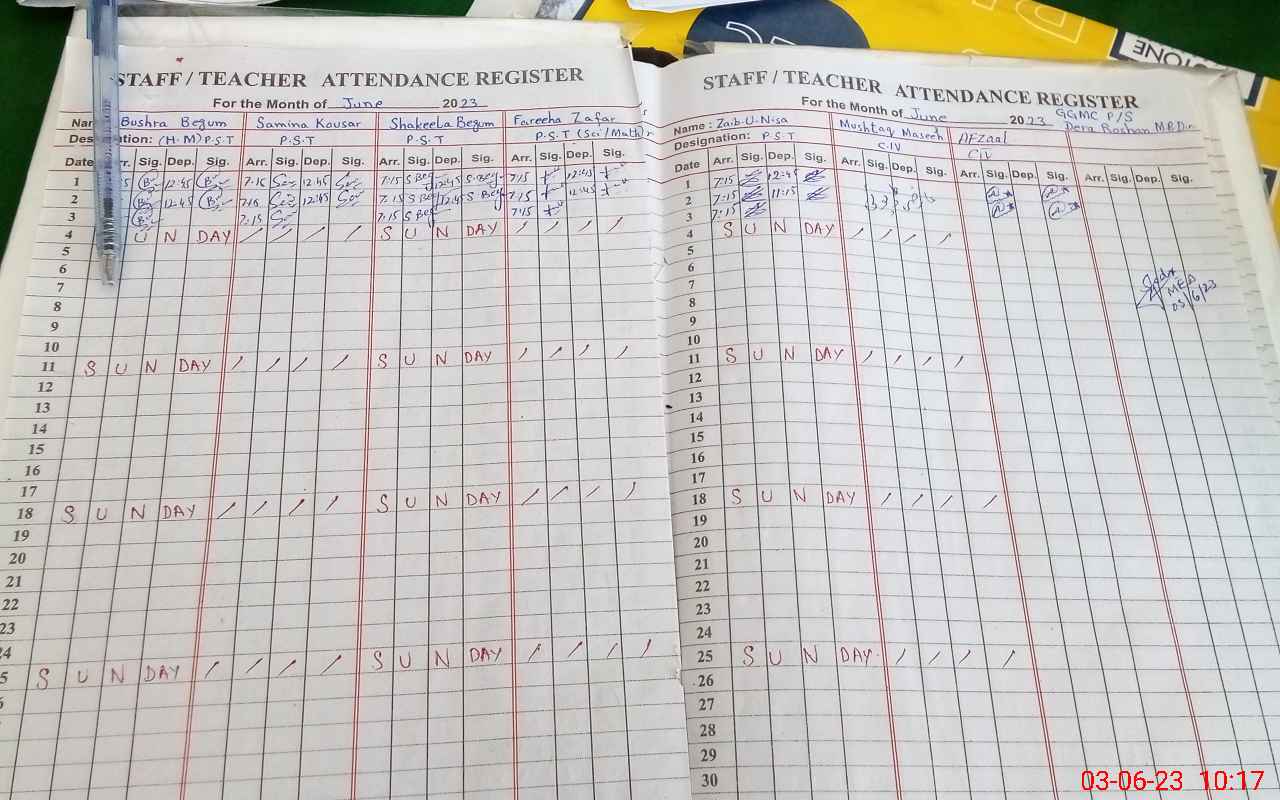 STONE
STAFF / TEACHER ATTENDANCE REGISTER
For the Month of June 2023
Bushra Begum Samina Kousar Shakeela Begum Fareeha Zafar
Designation: (H.M) P.S.T P.S.T P.S.T P.S.T (Sci/Math)
Date Arr. Sig. Dep. Sig. Arr. Sig. Dep. Sig. Arr. Sig. Dep. Sig. Arr. Sig. Dep. Sig.
1 12:45 7:15 12:45 7:15 S Beg 12:45 S Beg 7:15 12:45
2 12:45 7:15 12:45 7:15 S Beg 12:45 S Beg 7:15 12:45
3 7:15 7:15 S Beg 7:15
4 U N DAY / / / / S U N DAY / / / /
5
6
7
8
9
10
11 S U N DAY / / / / S U N DAY / / / /
12
13
14
15
16
17
18 S U N DAY / / / / S U N DAY / / / /
19
20
21
22
23
24
5 S U N DAY / / / / S U N DAY / / / /
STAFF / TEACHER ATTENDANCE REGISTER
For the Month of June 2023 GGMC P/S
Name : Zaib-U-Nisa Mushtaq Maseeh Afzaal Dera Roshan M.B.Din
Designation: P.S.T C.IV C.IV
Date Arr. Sig. Dep. Sig. Arr. Sig. Dep. Sig. Arr. Sig. Dep. Sig. Arr. Sig. Dep. Sig.
1 7:15 12:45
2 7:15 11:15
3 7:15
4 S U N DAY / / / /
5
6
7
MEA
03/6/23
8
9
10
11 S U N DAY / / / /
12
13
14
15
16
17
18 S U N DAY / / / /
19
20
21
22
23
24
25 S U N DAY / / / /
26
27
28
29
30
03-06-23 10:17